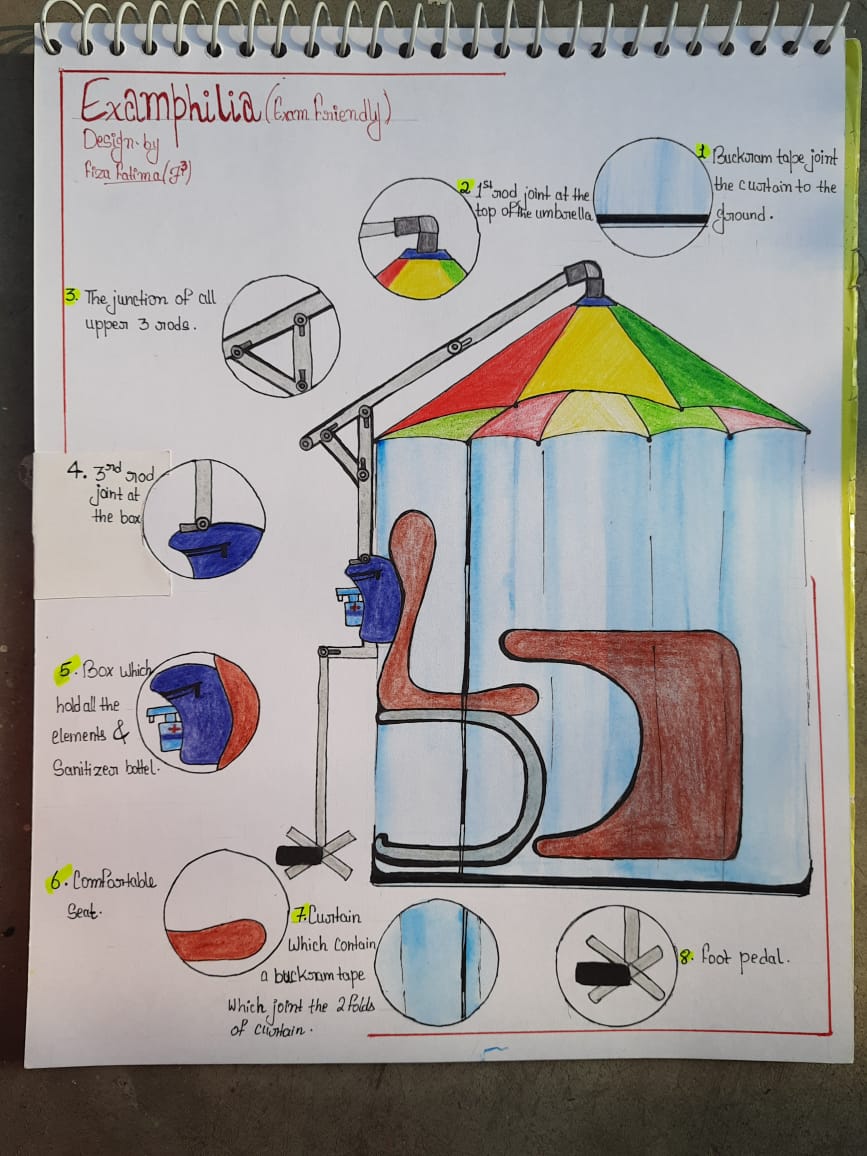 Examphilia (Exam Friendly)
Design by
Fiza Fatima (F³)
1 Buckram tape joint
the curtain to the
ground.
2 1st rod joint at the
top of the umbrella
3. The junction of all
upper 3 rods.
4. 3rd rod
joint at
the box
5. Box which
hold all the
elements &
Sanitizer bottel.
6. Comfortable
Seat.
7. Curtain
Which contain
a buckram tape
Which joint the 2 folds
of curtain.
8. Foot pedal.